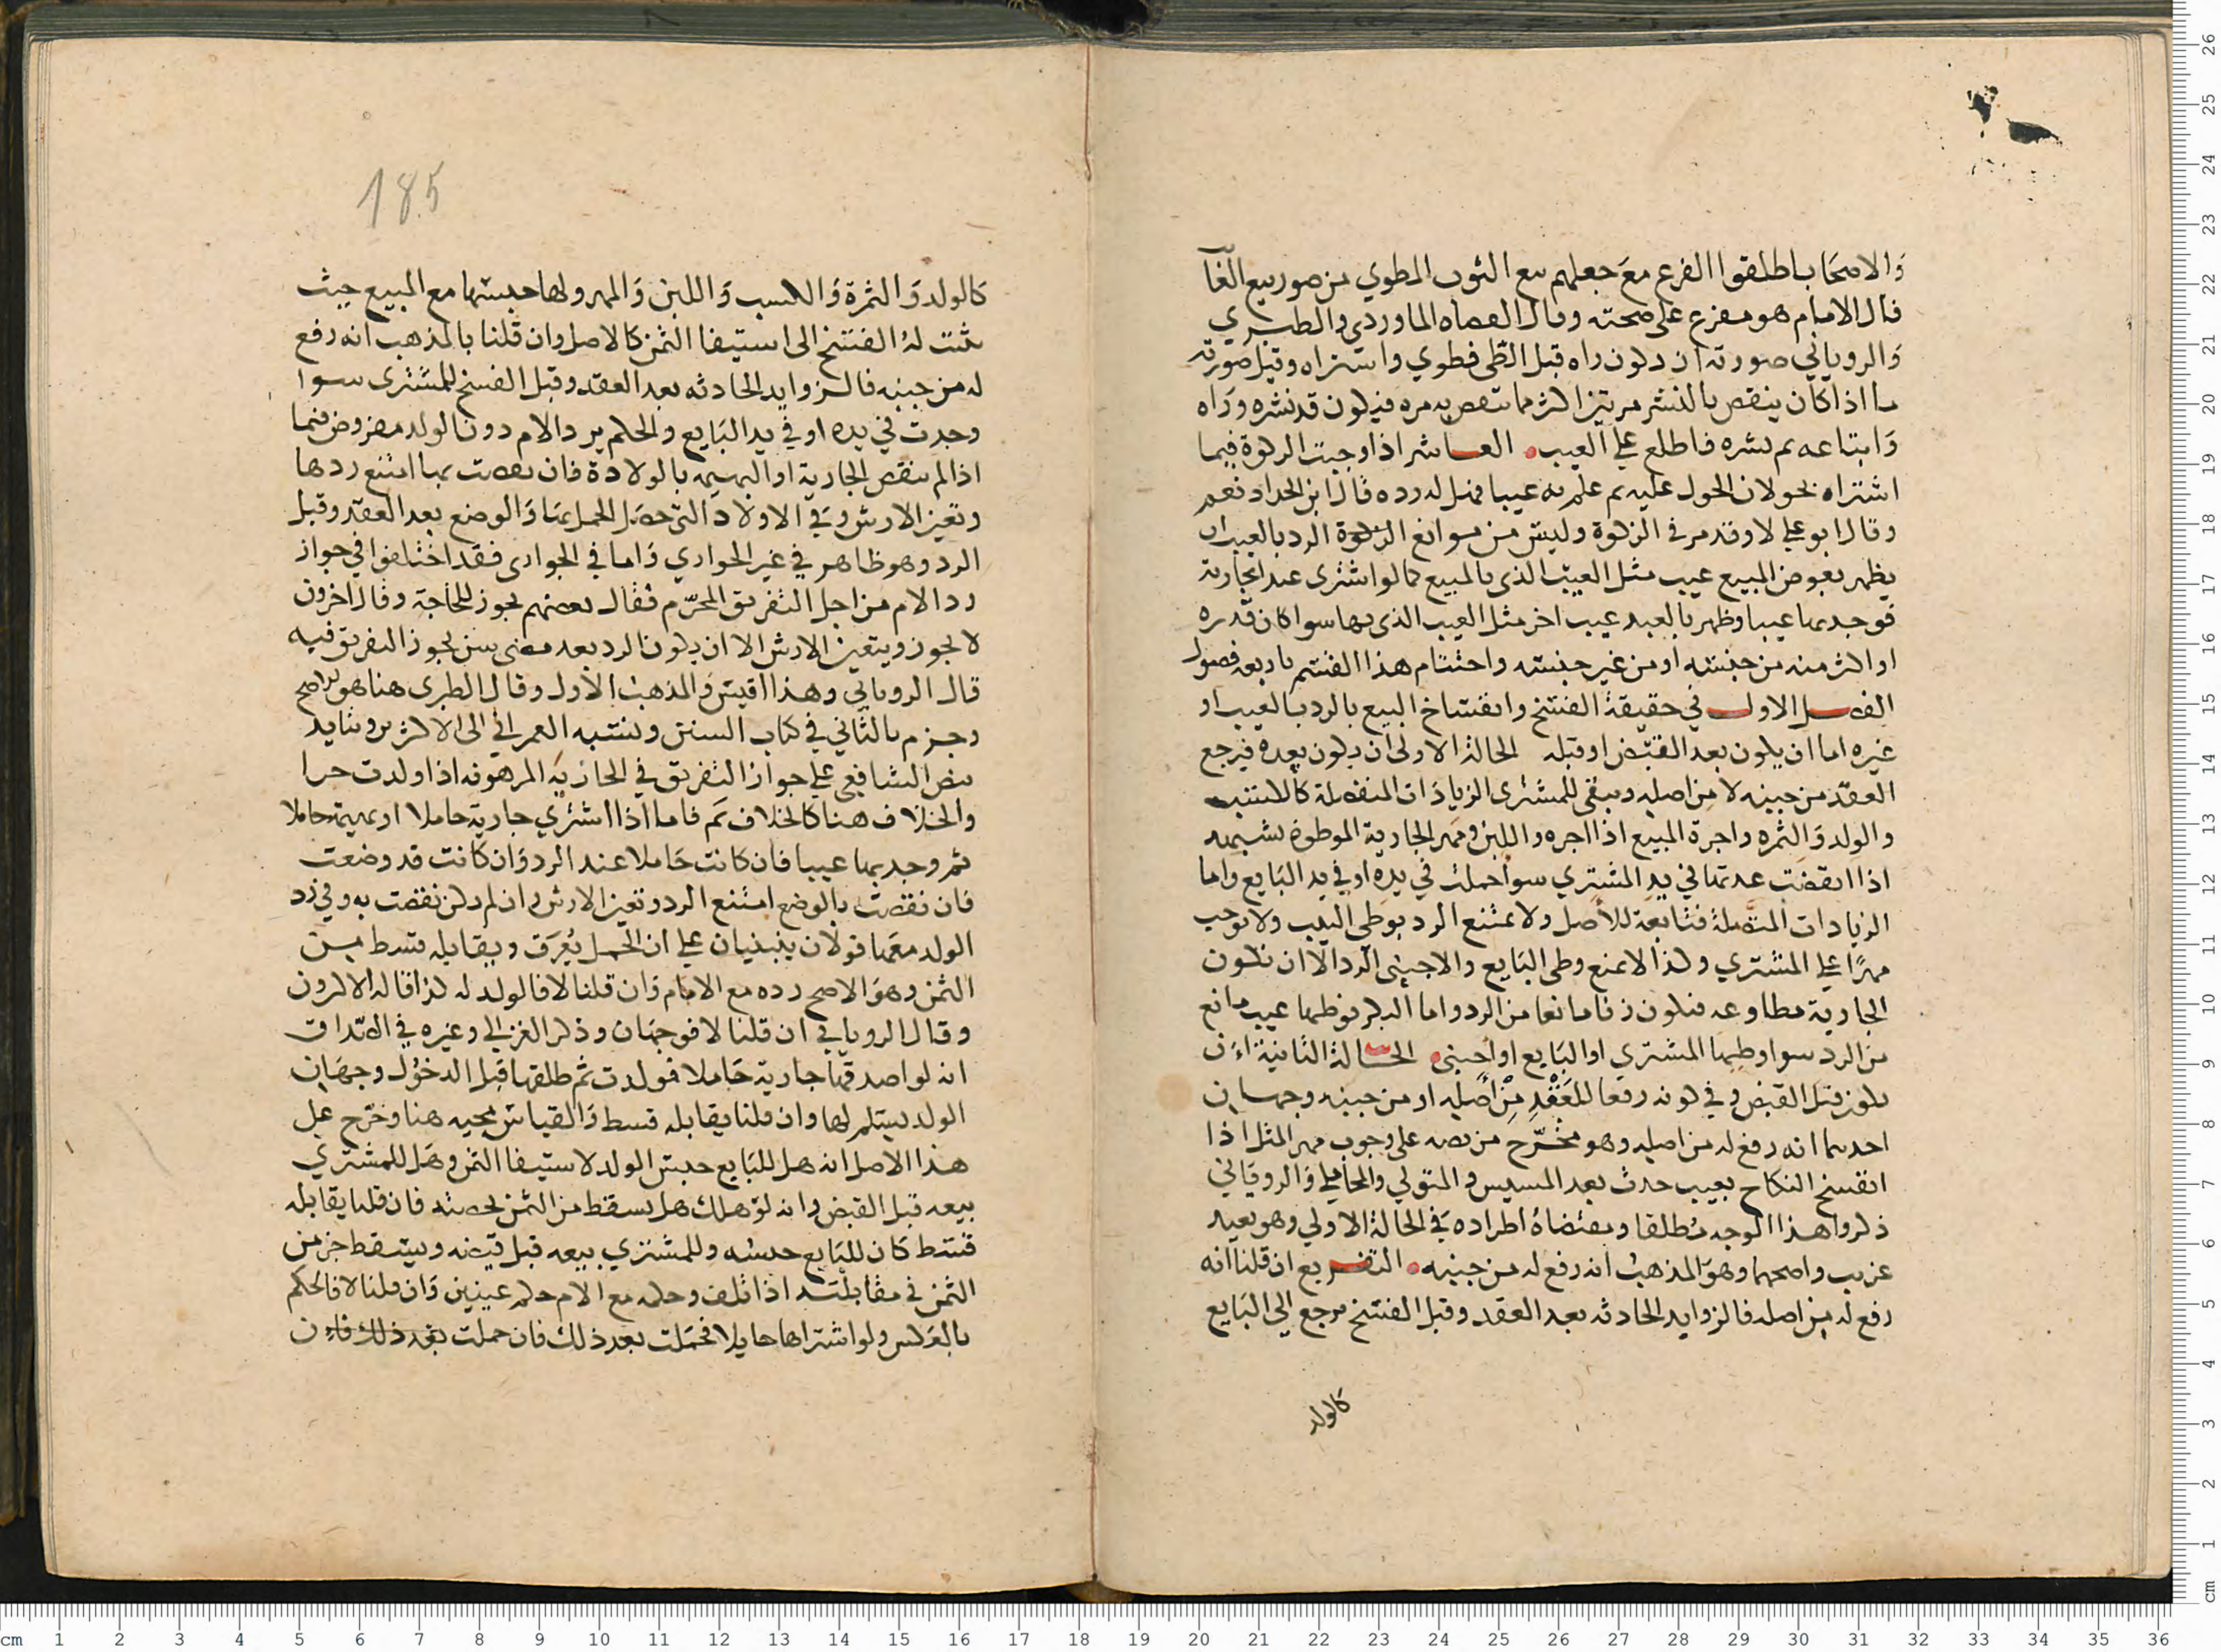 والاصحاب اطلقوا الفرع مع جعلهم بيع الثوب المطوي من صور بيع الغا
قال الامام هو مفرع على صحته وقال القضاه الماوردي والطبري
والروياني صورته ان يكون راه قبل الطي فطوي واشتراه وقيل صورته
ما اذا كان ينقص بالنشر مرتين اكثر مما ينقص به مره فيكون قد نشره وراه
وابتاعه ثم نشره فاطلع علي العيب العاشر اذا وجبت الزكوة فيما
اشتراه بحولان الحول عليه ثم علم به عيبا فهل له رده قال ابن الحداد نعم
وقال ابو علي لا وقد مر في الزكوة وليس من موانع الزكوة الرد بالعيب ان
يظهر بعوض المبيع عيب مثل العيب الذي بالمبيع كما لو اشترى عبدا بجارية
فوجد بها عيبا وظهر بالعبد عيب اخر مثل العيب الذي بها سوا كان قدره
او اكثر منه من جنسه او من غير جنسه واختتام هذا القسم باربعه فصول
الفصل الاول في حقيقة الفسخ وانفساخ البيع بالرد بالعيب او
غيره اما ان يكون بعد القبض او قبله الحالة الاولى ان يكون بعده فيرجع
العقد من حينه لا من اصله ويبقى للمشترى الزيادات المنفصلة كالكسب
والولد والثمره واجرة المبيع اذا اجره واللبن ومهر الجارية الموطوة بشبهه
اذا انقضت عدتها في يد المشتري سوا حملت في يده او في يد البايع واما
الزيادات المتصلة فتابعة للاصل ولا يمتنع الرد بوطي الثيب ولا يوجب
مهرا علي المشتري وكذا لا يمنع وطي البايع والاجنبي الرد الا ان تكون
الجارية مطاوعه فيكون زنا مانعا من الرد واما البكر فوطيها عيب مانع
من الرد سوا وطيها المشتري او البايع او اجنبي الحالة الثانية ان
يكون قبل القبض وفي كونه رفعا للعقد من اصله او من حينه وجهان
احدهما انه رفع له من اصله وهو مخرج من نصه على وجوب مهر المثل اذا
انفسخ النكاح بعيب حدث بعد المسيس والمتولي والمحاملي والروياني
ذكروا هذا الوجه مطلقا ومقتضاه اطراده في الحالة الاولي وهو بعيد
غريب واصحهما وهو المذهب انه رفع له من حينه التفريع ان قلنا انه
رفع له من اصله فالزوايد الحادثه بعد العقد وقبل الفسخ ترجع الي البايع
كالولد
185
كالولد والثمرة والكسب واللبن والمهر ولها حبسها مع المبيع حيث
يثبت له الفسخ الى استيفا الثمن كالاصل وان قلنا بالمذهب انه رفع
له من حينه فالزوايد الحادثه بعد العقد وقبل الفسخ للمشترى سوا
وجدت في يده او في يد البايع والحكم يرد الام دون الولد مفروض فيما
اذا لم تنقص الجارية او البهيمه بالولادة فان نقصت بها امتنع ردها
وتعين الارش وفي الاولاد التي حصل الحمل بها والوضع بعد العقد وقبل
الرد وهو ظاهر في غير الجواري واما في الجواري فقد اختلفوا في جواز
رد الام من اجل التفريق المحرم فقال بعضهم يجوز للحاجة وقال اخرون
لا يجوز ويتعين الارش الا ان يكون الرد بعد مضى سن يجوز التفريق فيه
قال الروياني وهذا اقيس والمذهب الاول وقال الطبرى هنا هو الاصح
وجزم بالثاني في كتاب السنن ونسبه العمراني الى الاكثرين وشايد
نص الشافعي علي جواز التفريق في الجارية المرهونه اذا ولدت حرا
والخلاف هنا كالخلاف ثم فاما اذا اشترى جارية حاملا او بهيمة حاملا
ثم وجد بها عيبا فان كانت حاملا عند الرد وان كانت قد وضعت
فان نقصت بالوضع امتنع الرد وتعين الارش وان لم تكن نقصت به وفي رد
الولد معها قولان ينبنيان علي ان الحمل يعرف ويقابله قسط من
الثمن وهو الاصح رده مع الام وان قلنا لا فالولد له كذا قاله الاكثرون
وقال الروياني ان قلنا لا فوجهان وذكر الغزالي وغيره في الصداق
انه لو اصدقها جارية حاملا فولدت ثم طلقها قبل الدخول وجهان
الولد يسلم لها وان قلنا يقابله قسط والقياس مجيه هنا وخرج علي
هذا الاصل انه هل للبايع حبس الولد لاستيفا الثمن وهل للمشتري
بيعه قبل القبض وانه لو هلك هل يسقط من الثمن بحصته فان قلنا يقابله
قسط كان للبايع حبسه وللمشتري بيعه قبل قبضه ويسقط جز من
الثمن في مقابلته اذا تلف وحكمه مع الام حكم عينين وان قلنا لا فالحكم
بالعكس ولو اشتراها حايلا فحملت بعد ذلك فان حملت بعد ذلك فان